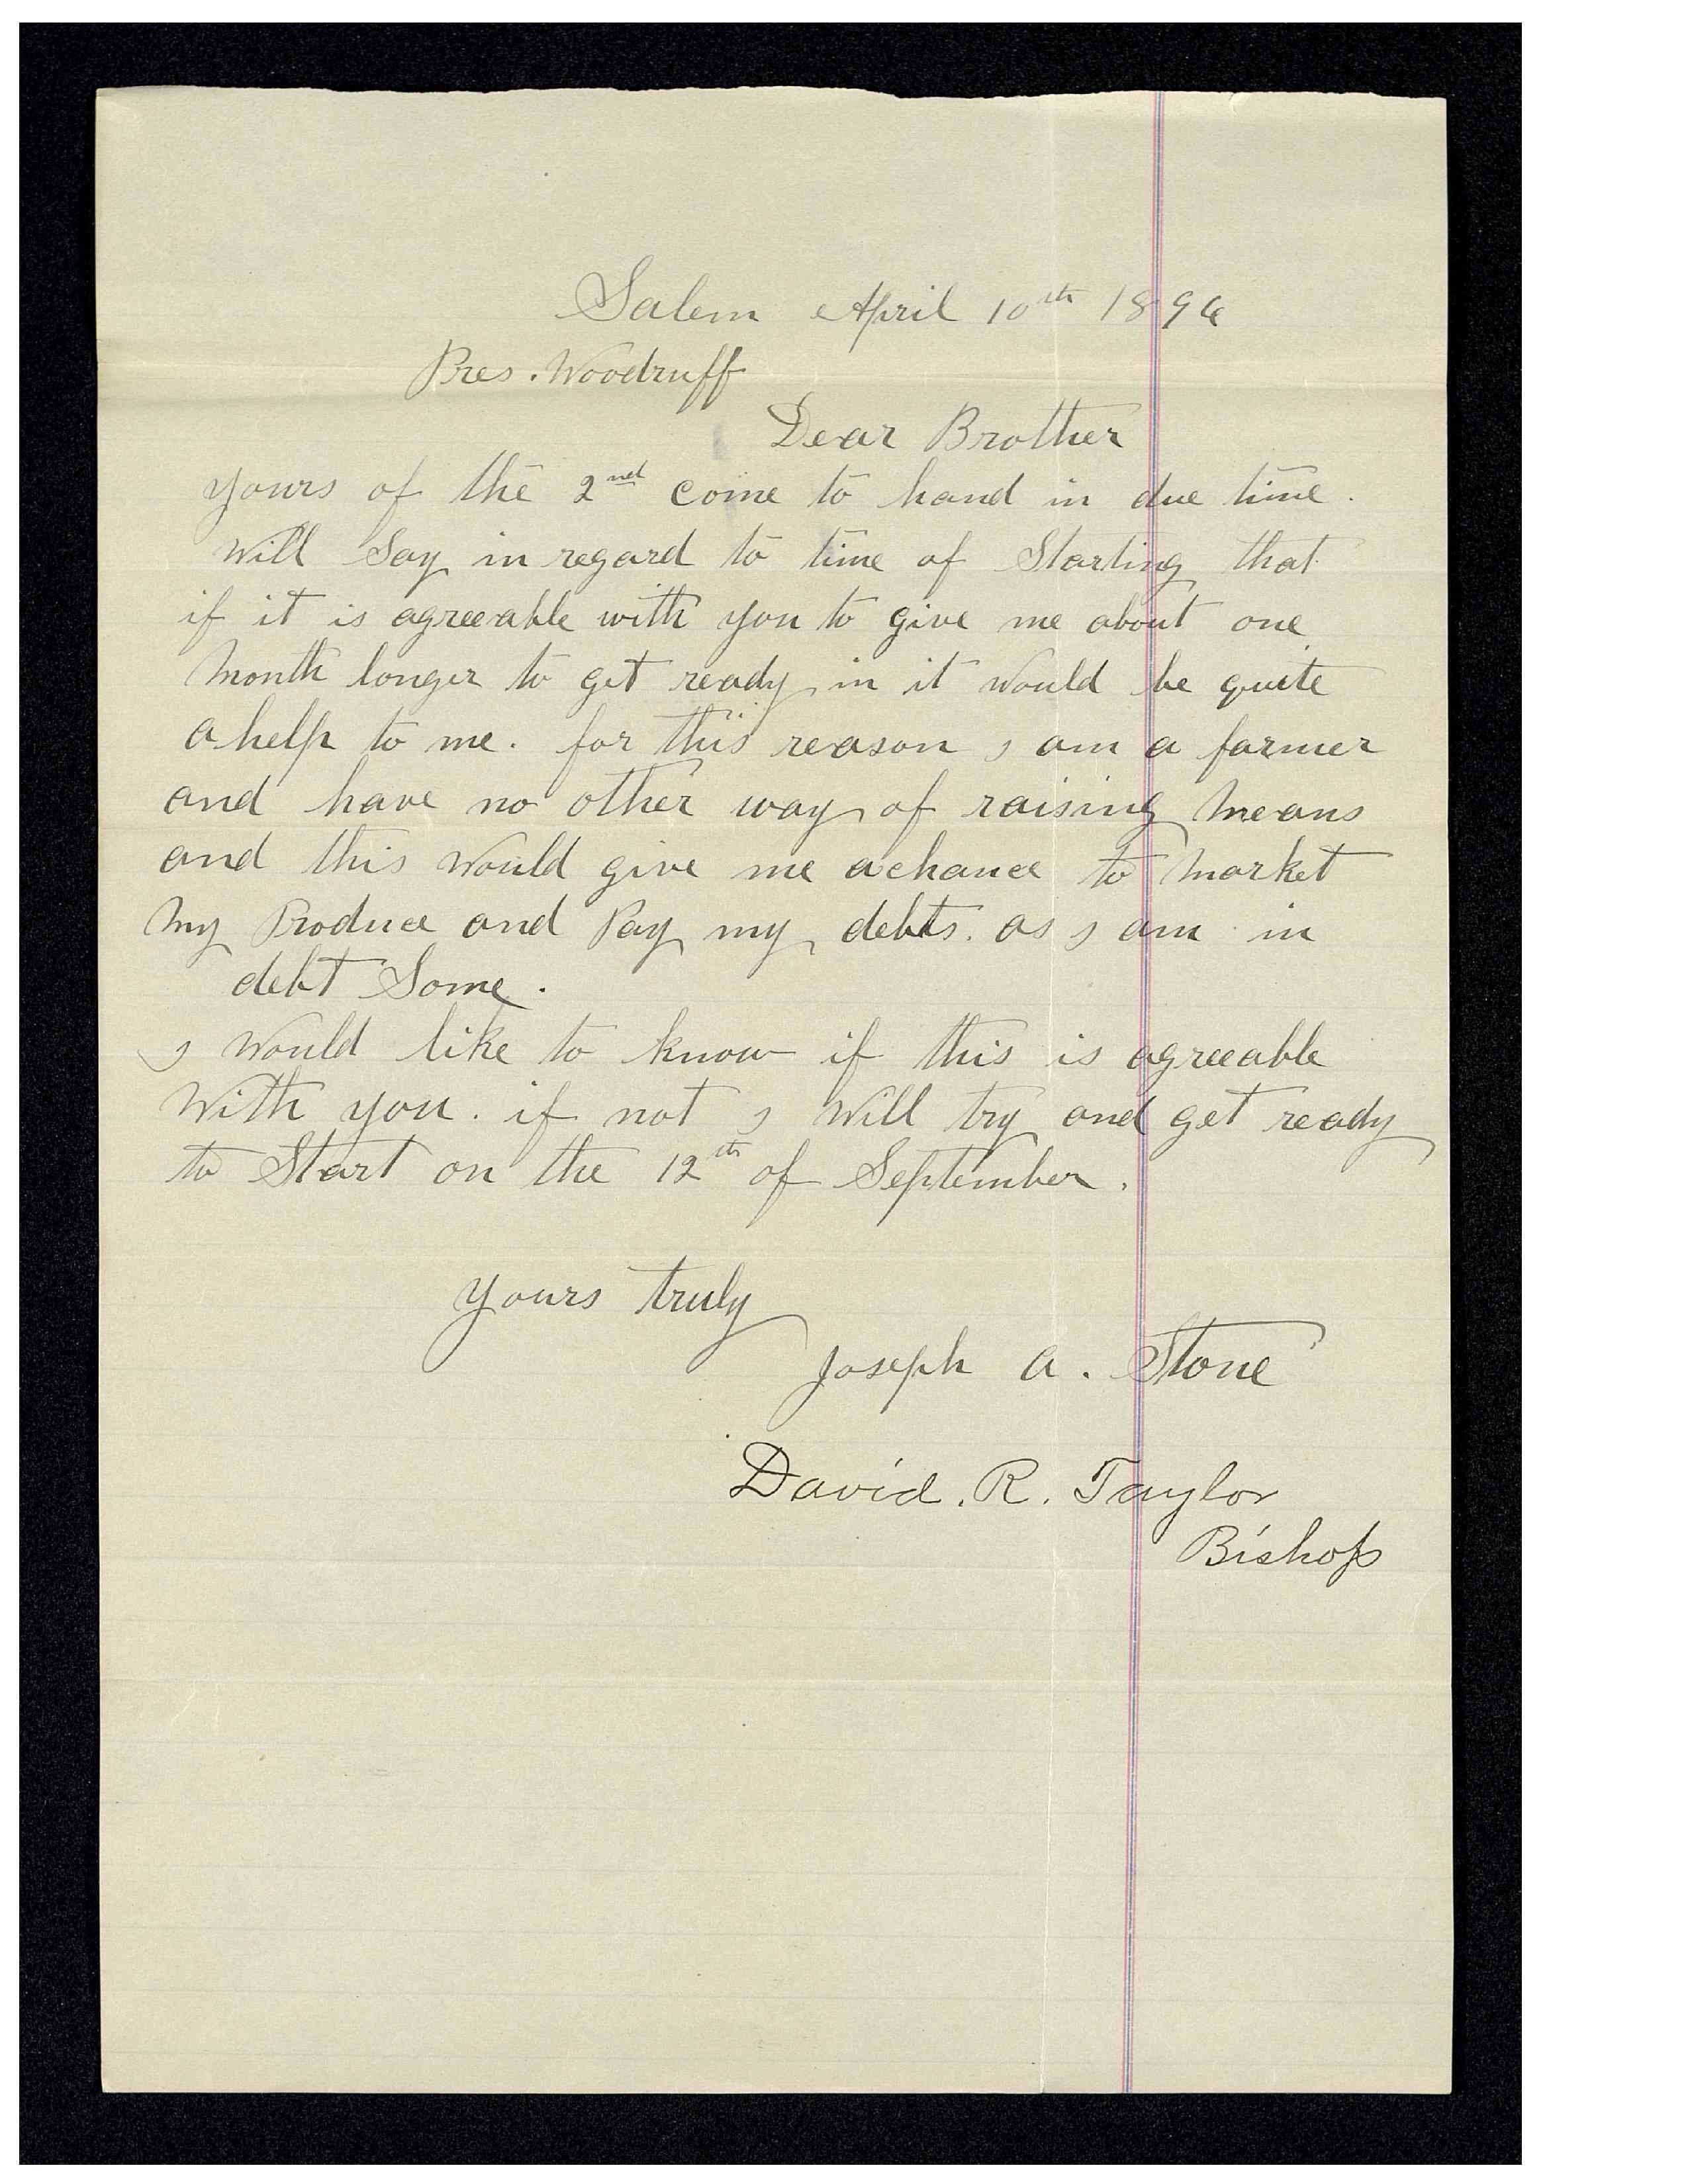 Salem April 10th 1896
Pres. Woodruff
Dear Brother
yours of the 2nd come to hand in due time.
Will Say in regard to time of Starting that
if it is agreeable with you to give me about one
Month longer to get ready in it would be quite
a help to me. for this reason I am a farmer
and have no other way of raising Means
and this would give me a chance to Market
My Produce and Pay my debts. as I am in
debt Some.
I would like to know if this is agreeable
With you. if not I Will try and get ready
to Start on the 12th of September.
Yours truly
Joseph A. Stone
David. R. Taylor
Bishop